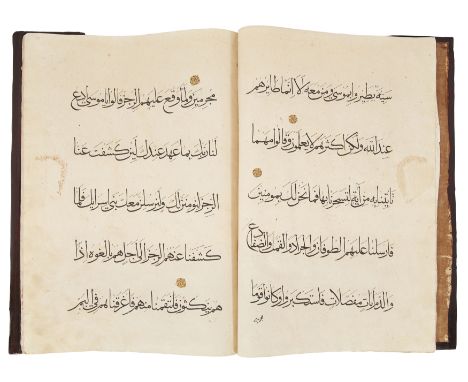 سيه يطيروا بموسى ومن معه الا انما طايرهم
عند الله ولكن اكثرهم لا يعلمون وقالوا مهما
تاتينا به من اية لتسحرنا بها فما نحن لك بمومنين
فارسلنا عليهم الطوفان والجراد والقمل والضفادع
والدم ايات مفصلات فاستكبروا وكانوا قوما
مجرمين
مجرمين ولما وقع عليهم الرجز قالوا يا موسى ادع
لنا ربك بما عهد عندك لين كشفت عنا
الرجز لنومنن لك ولنرسلن معك بني اسرايل فلما
كشفنا عنهم الرجز الى اجل هم بالغوه اذا
هم ينكثون فانتقمنا منهم فاغرقناهم في اليم